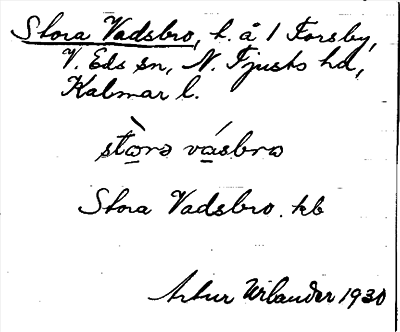 Stora Vadsbro, t. å 1 Forsby,
V. Eds sn, N. Tjusts hd,
Kalmar l.
stòrə vásbrω
Stora Vadsbro. kb
Artur Wilander 1930